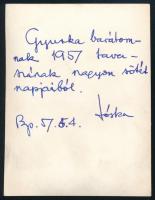 Gyuska barátom-
nak 1957 tava-
szának nagyon sötét
napjaiból.
Jóska
Bp. 57. 5. 4.